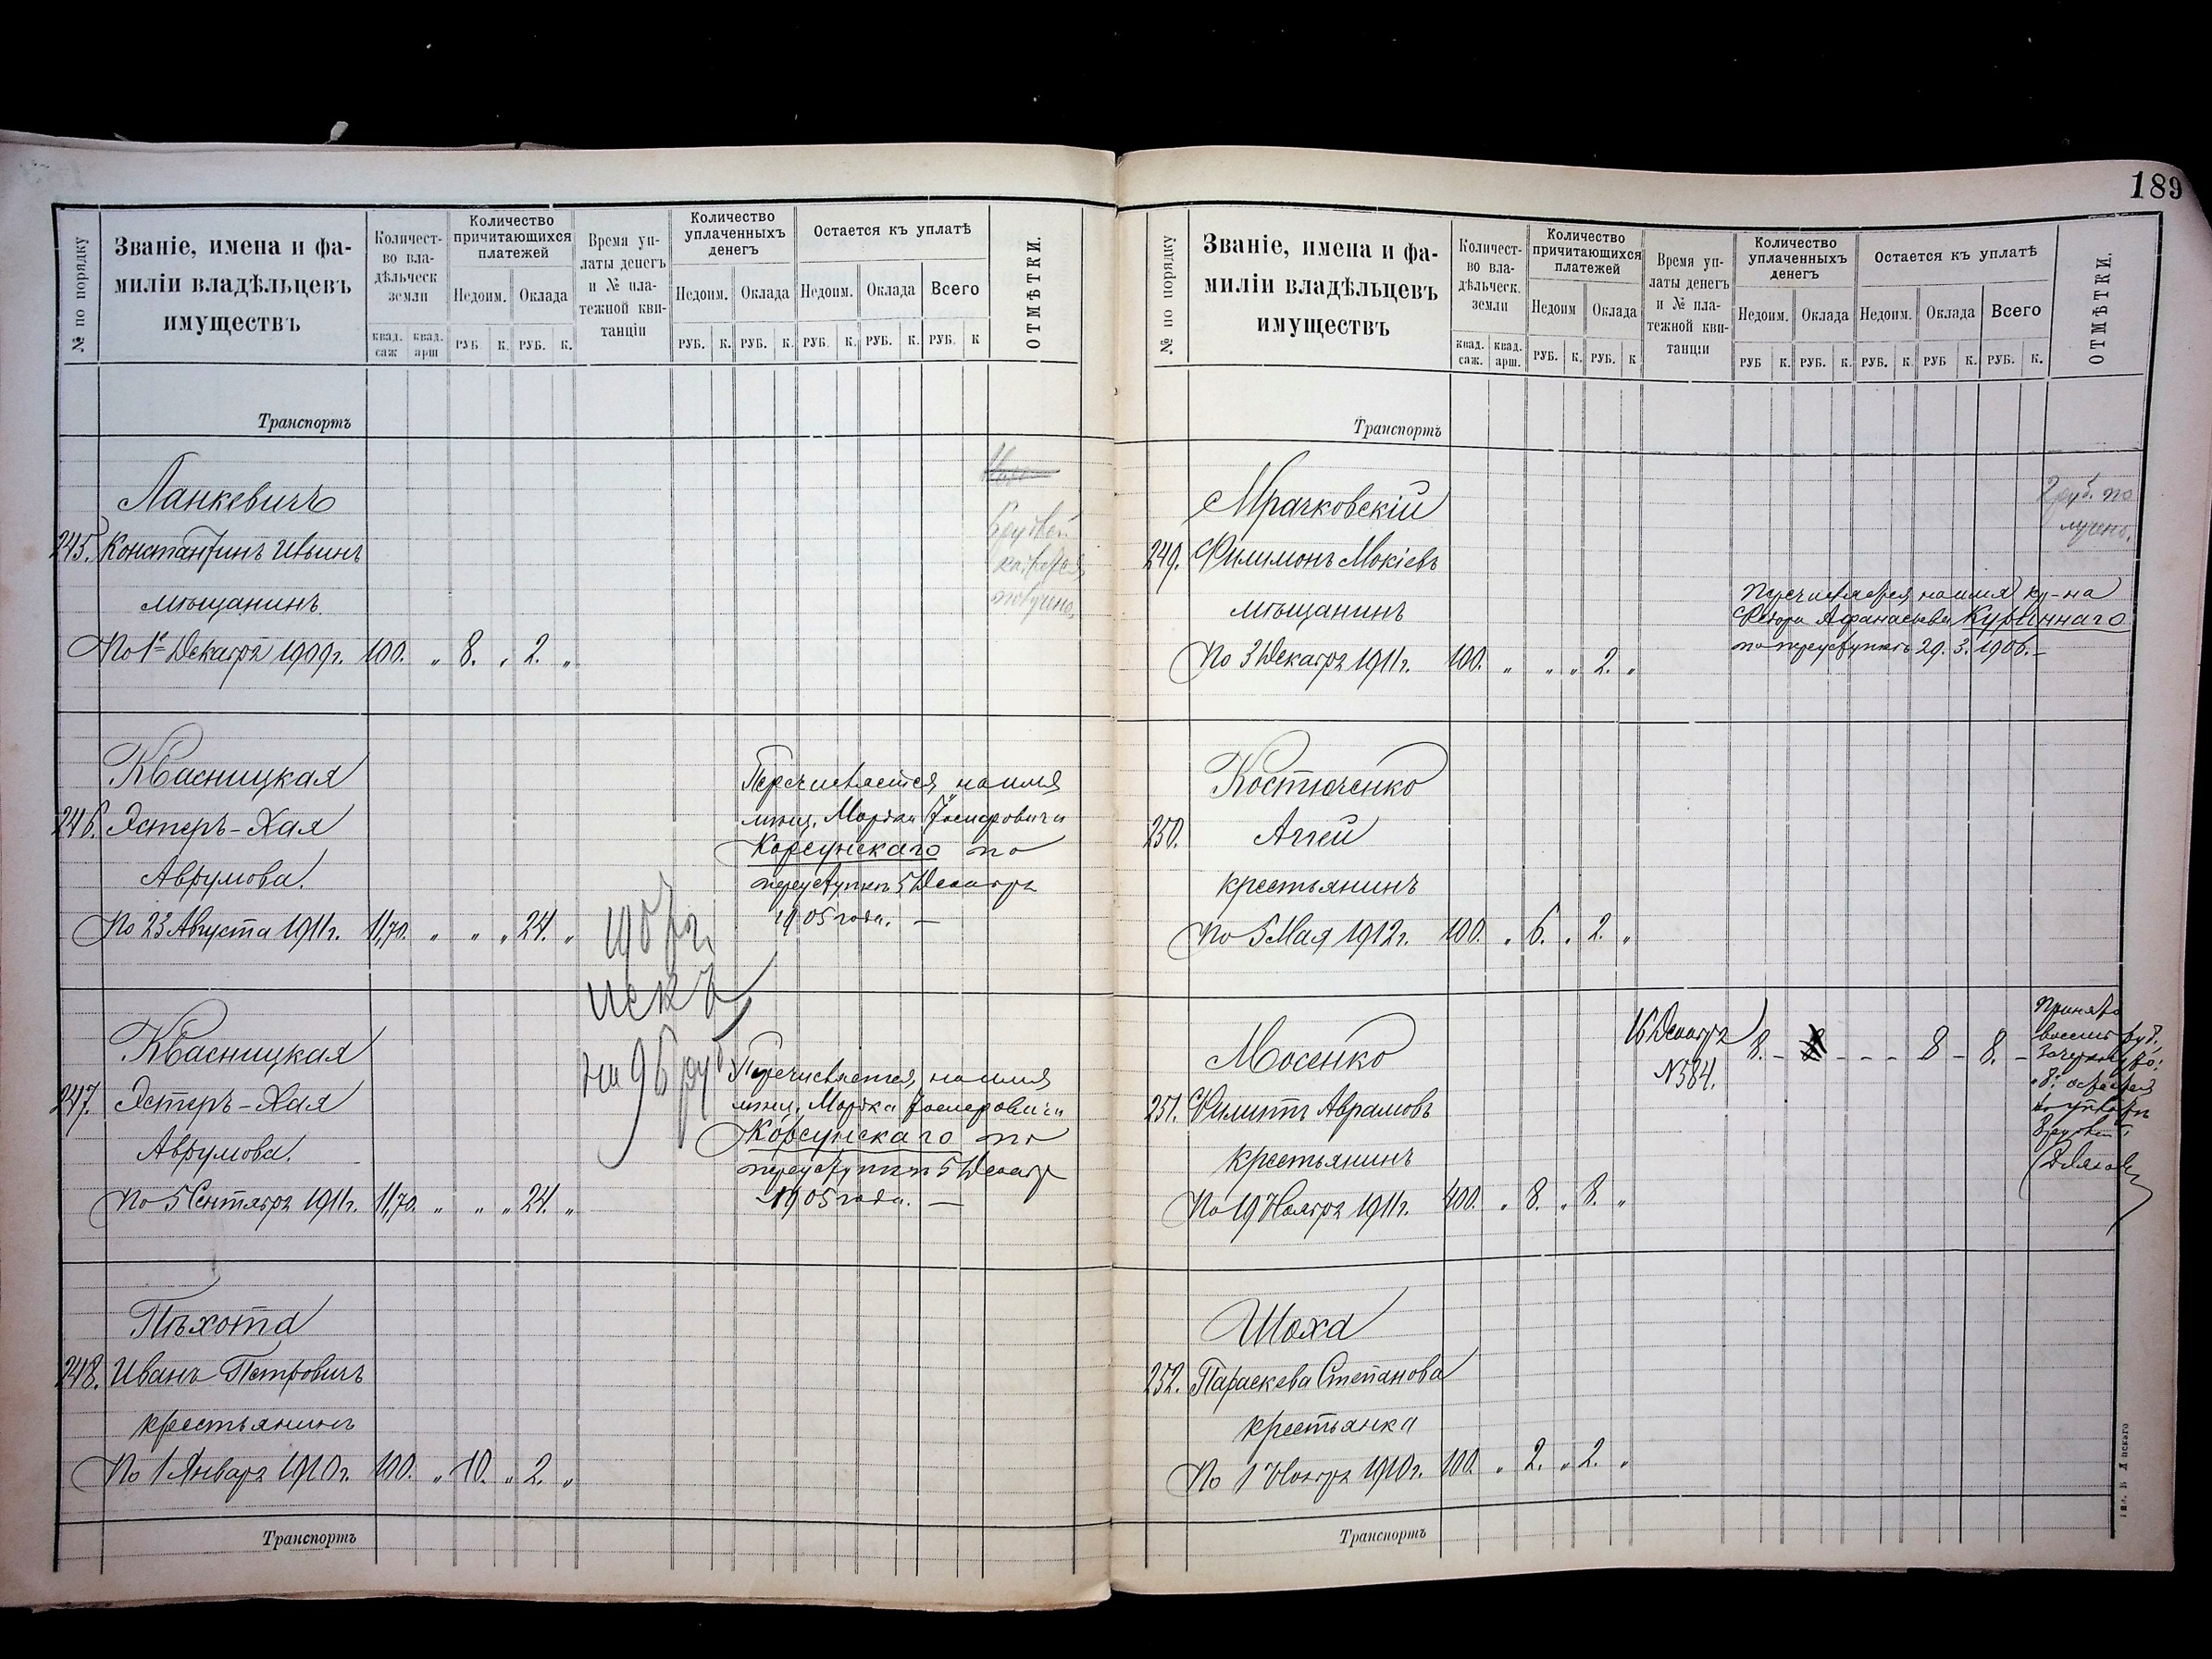 189
№ по порядку
Званіе, имена и фа-
миліи владѣльцевъ
имуществъ
Количест-
во вла-
дѣльческ
земли
квад. саж
квад. арш
Количество
причитающихся
платежей
Недоим.
Оклада
РУБ. К. РУБ. К.
Время уп-
латы денегъ
и № пла-
тежной кви-
танціи
Количество
уплаченныхъ
денегъ
Недоим. Оклада
РУБ. К. РУБ. К.
Остается къ уплатѣ
Недоим. Оклада Всего
РУБ. К. РУБ. К. РУБ. К
ОТМѢТКИ.
Транспортъ
Ланкевичъ
245. Константинъ Ивинъ
мѣщанинъ
По 1е Декабря 1909г. 100. „ 8. „ 2. „
получено
Квасницкая
246. Эстеръ-Хая
Аврумова.
По 23 Августа 1911г. 11,70. „ „ „ 24. „
Перечисляется на имя
мѣщ.
Корсунскаго по
переуступкѣ 5 Декабря
1905 года. —
искъ
на 96 руб
Квасницкая
247. Эстеръ-Хая
Аврумова.
По 5 Сентября 1911г. 11,70. „ „ „ 24. „
Перечисляется на имя
мѣщ.
Корсунскаго по
переуступкѣ 5 Декабр
1905 года. —
Пѣхота
248. Иванъ Петровичъ
крестьянинъ
По 1 Января 1910г. 100. „ 10. „ 2. „
Транспортъ
№ по порядку
Званіе, имена и фа-
миліи владѣльцевъ
имуществъ
Количест-
во вла-
дѣльческ.
земли
квад. саж.
квад. арш.
Количество
причитающихся
платежей
Недоим Оклада
РУБ. К. РУБ. К
Время уп-
латы денегъ
и № пла-
тежной кви-
танціи
Количество
уплаченныхъ
денегъ
Недоим. Оклада
РУБ К. РУБ. К.
Остается къ уплатѣ
Недоим. Оклада Всего
РУБ. К. РУБ К. РУБ. К.
ОТМѢТКИ.
Транспортъ
Мрачковскій
249. Филимонъ Мокіевъ
мѣщанинъ
По 3 Декабря 1911г. 100. „ „ „ 2. „
2 руб. по
лучено.
Перечисляется на имя кр-на
Ѳедора Афанасьева Куринннаго
по переуступкѣ 29. 3. 1906. —
Костюченко
250. Аггей
крестьянинъ
По 5 Мая 1912г. 100. „ 6. „ 2. „
Мосенко
251. Филиппъ Авра­мовъ
крестьянинъ
По 19 Ноября 1911г. 400. „ 8. „ 8. „
16 Декабря
№384.
8. - - - - 8 - 8. -
Принято
восемь руб.
Шоха
252. Параскева Степанова
крестьянка
По 1 Ноября 1910г. 100. „ 2. „ 2. „
Транспортъ